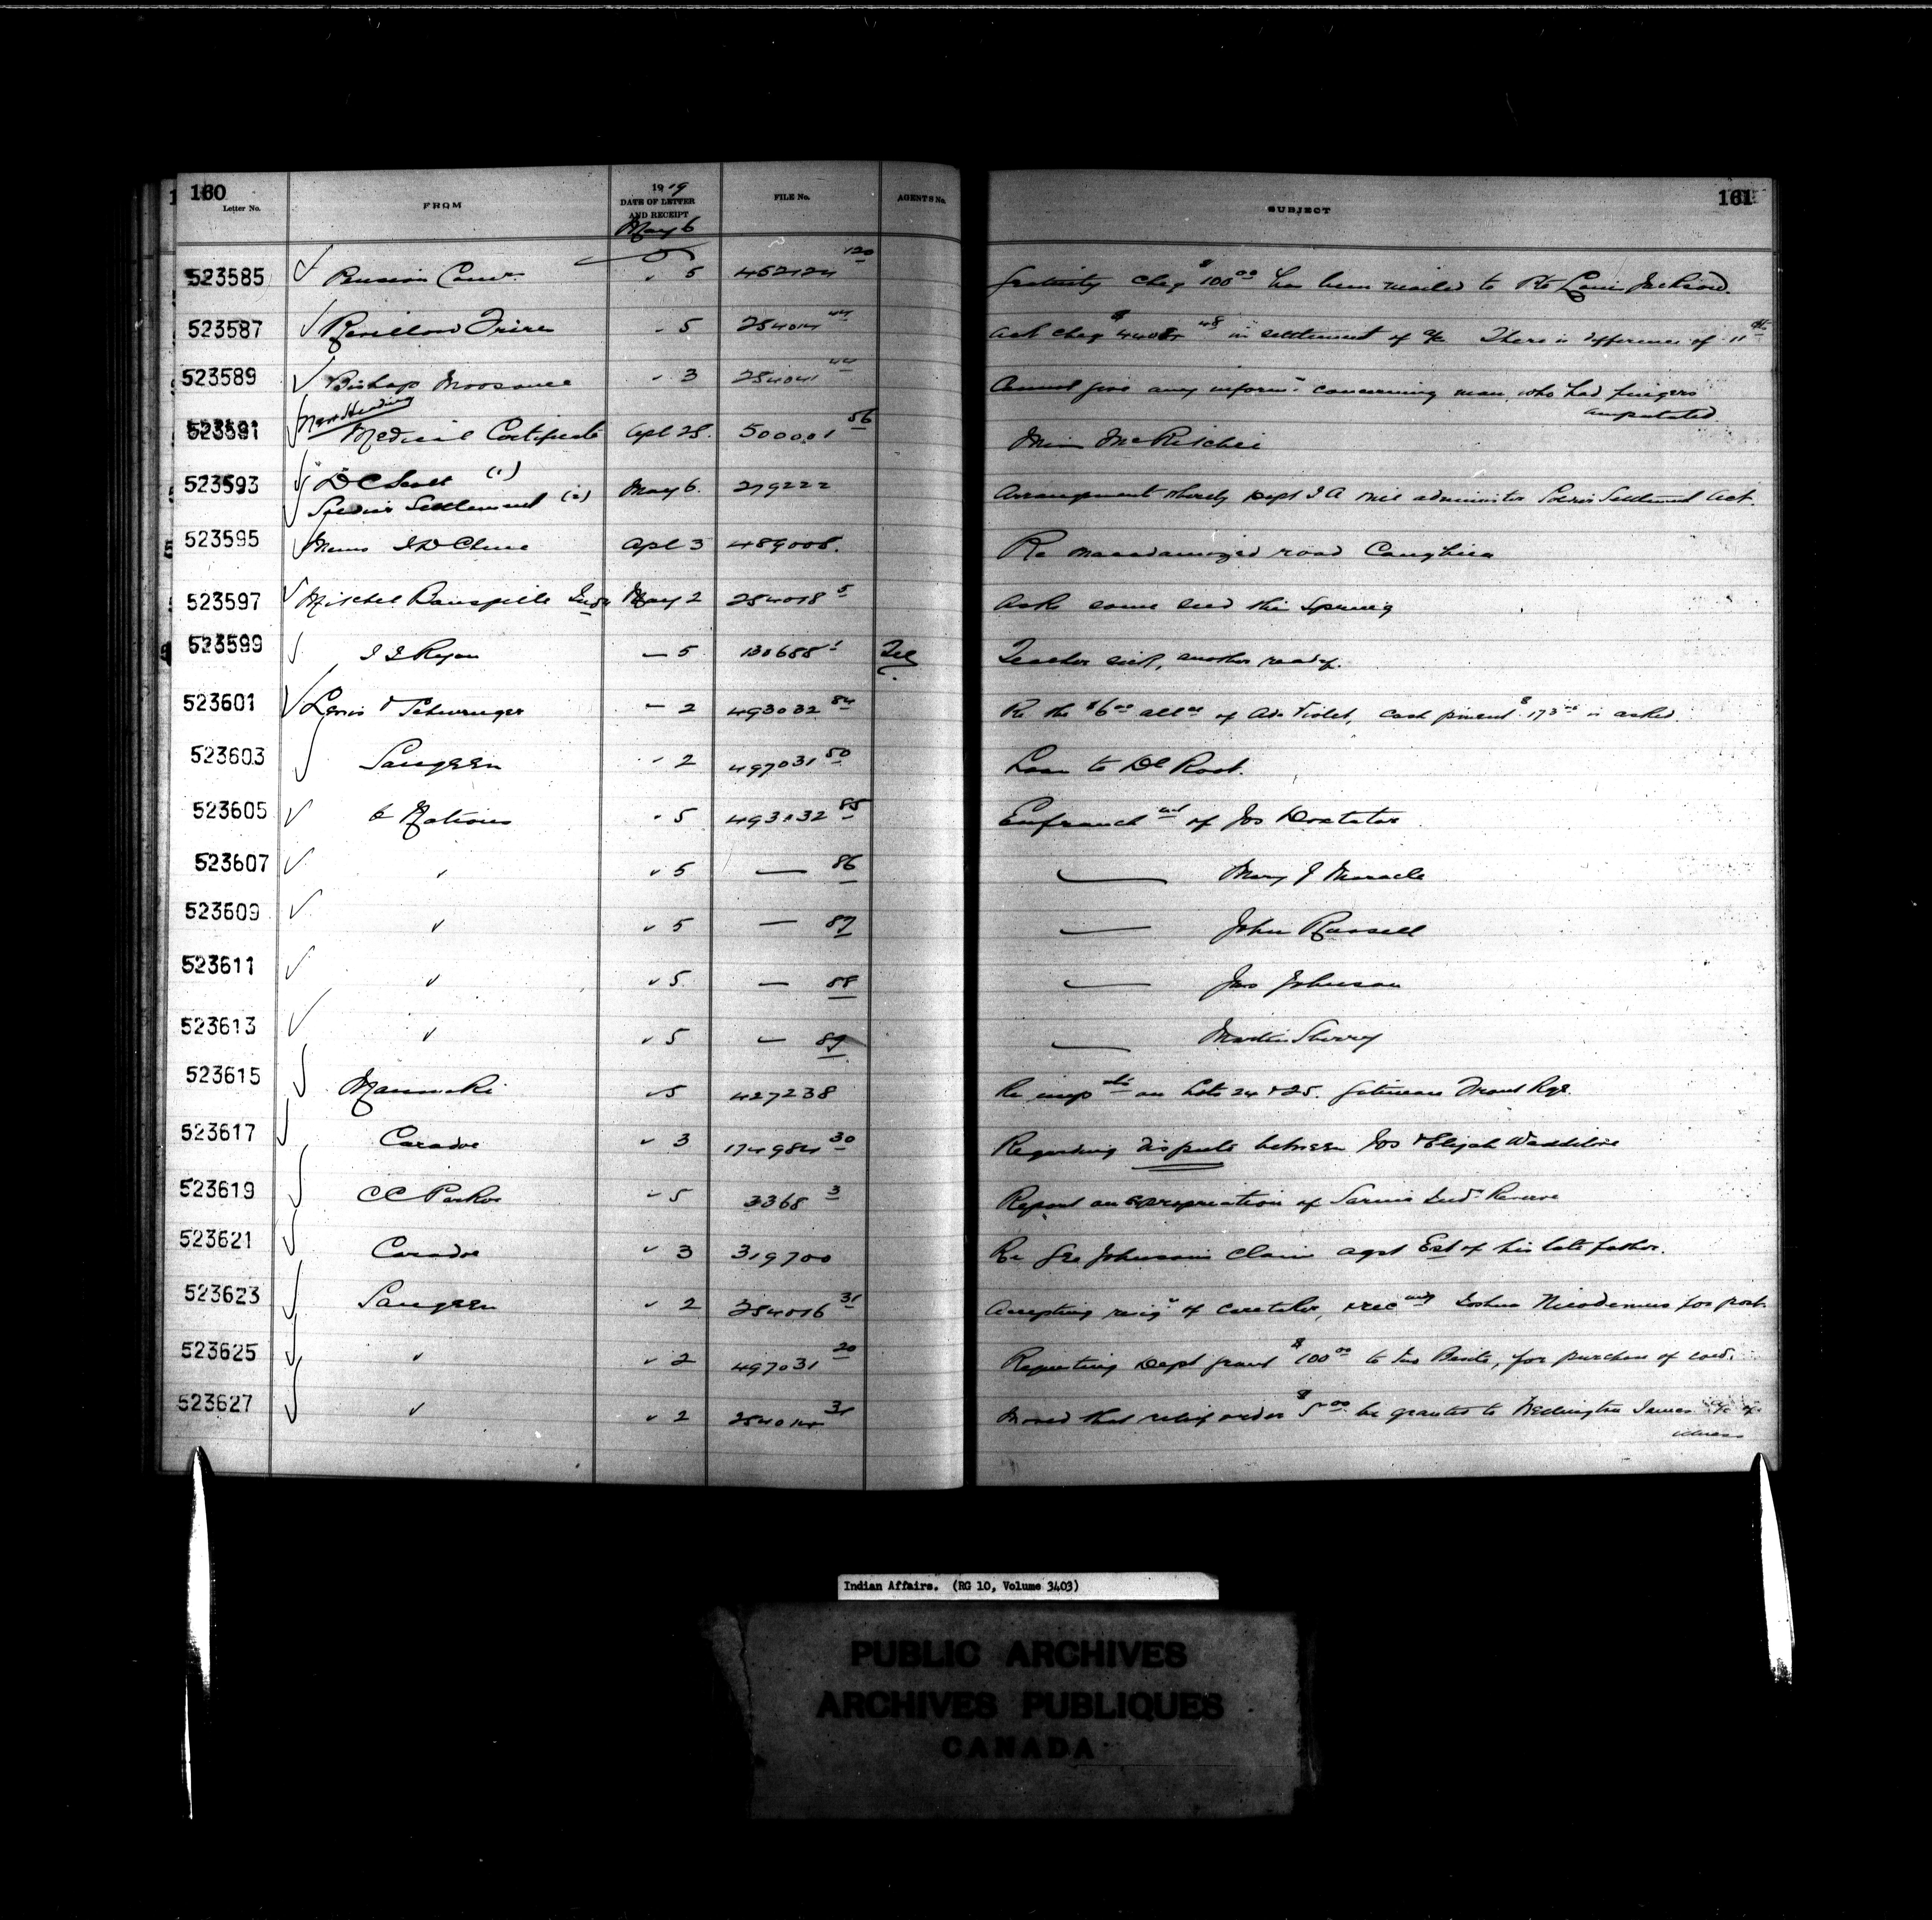 160
161
Letter No. FROM 1919 DATE OF LETTER AND RECEIPT FILE No. AGENTS No. SUBJECT
May 6
523585 Pension Com. " 5 462124 120 Gratuity cheq $100.00 has been mailed to Pte Louis Jackson.
523587 Revillon Freres " 5 254014 44 Ack cheq $ 48 in settlement of a/c There is difference of 11
523589 Bishop Moosonee " 3 44 Cannot give any inform. concerning man who had fingers
amputated.
523591 New Heading Medical Certificate Apl 28. 500001 56 Miss McRitchie
523593 D C Scott (1) May 6. 279222 Arrangement whereby Dept I A will administer Soldier Settlement Act.
Soldier Settlement (2)
523595 Memo Apl 3 489008. Re macadamized road Caughna
523597 Mitchel May 2 254018 5 Ask some seed this spring
523599 Ryan — 5 130688 1 Tel Teacher sick, another ready.
523601 Lewis & — 2 493032 84 Re the $6.00 of Violet, cash $173 is asked.
523603 Saugeen " 2 497031 50 Loan to Root.
523605 6 Nations " 5 493032 85 Enfranchmt of Jos Doxtator
523607 " " 5 — 86 — Mary J Maracle
523609 " " 5 — 87 — John Russell
523611 " " 5 — 88 — Johnson
523613 " " 5 — 89 — Martin
523615 Maniwaki " 5 427238 Re on Lots 24 & 25. Gatineau Front Rge.
523617 Caradoc " 3 174984 30 Regarding dispute between Jos & Elijah Waddilove
523619 C C Parker " 5 3368 3 Report on expropriation of Sarnia Ind. Reserve
523621 Caradoc " 3 319700 Re Geo Johnson's claim agst Est of his late father.
523623 Saugeen " 2 254016 31 Accepting resig. of caretaker, & rec Nicodemus for post.
523625 " " 2 497031 20 Requesting Dept grant $100.00 to , for purchase of
523627 " " 2 254014 31 Moved that relief order $5.00 be granted to Wellington James a/c of
illness
Indian Affairs. (RG 10, Volume 3403)
PUBLIC ARCHIVES
ARCHIVES PUBLIQUES
CANADA